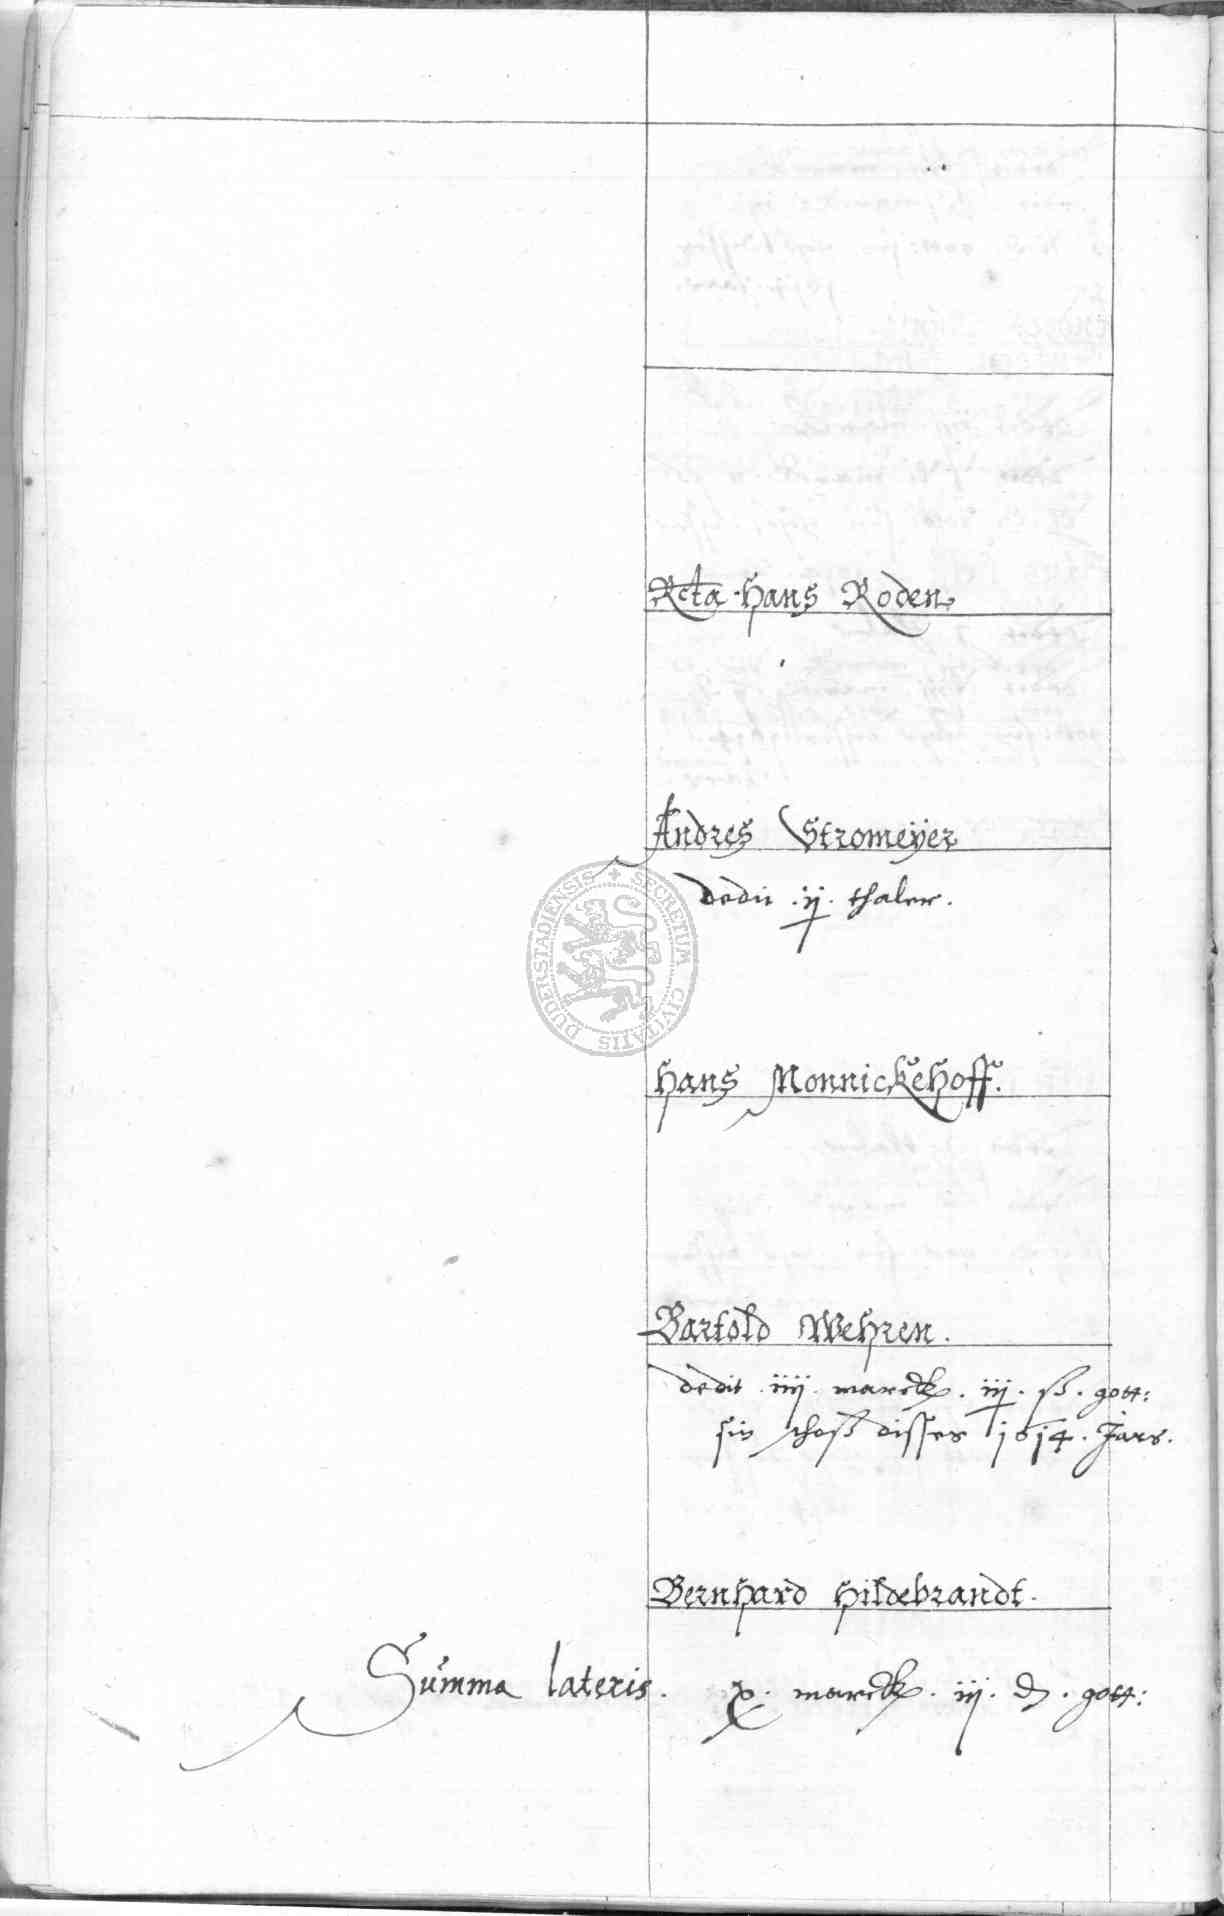 Rcta Hans Roden
Andres Stromeyer
dedit .ij. thaler.
SECRETUM CIVITATIS DUDERSTADIENSIS
Hans Monnickehoff.
Bartold Wehren.
dedit .iiij. marck. iij. ß. gott:
sin schoß disses 1614. Jars.
Bernhard Hildebrandt.
Summa lateris. x. marck. iij. d. gott: